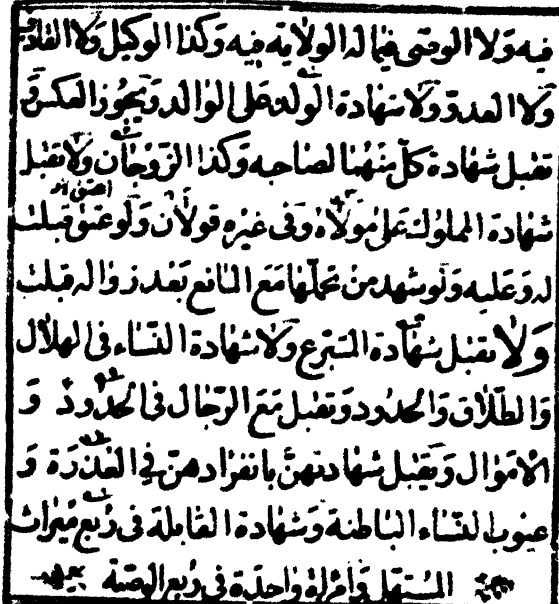 فيه ولا الوصى فيما له الولاية فيه وكذا الوكيل ولا
ولا العدو ولا شهادة الولد على الوالد ويجوز العكس و
تقبل شهادة كل منهما لصاحبه وكذا الزوجان ولا تقبل
شهادة المملوك على مولاه وفى غيره قولان ولو عتق قبلت
له وعليه ولو شهد من تحملها مع المانع بعد زواله قبلت
ولا تقبل شهادة المتبرع ولا شهادة النساء فى الهلال
والطلاق والحدود وتقبل مع الرجال فى الحدود و
الاموال وتقبل شهادتهن بانفرادهن فى العذرة و
عيوب النساء الباطنة وشهادة القابلة فى ربع ميراث
المستهل وامرأة واحدة فى ربع الوصية